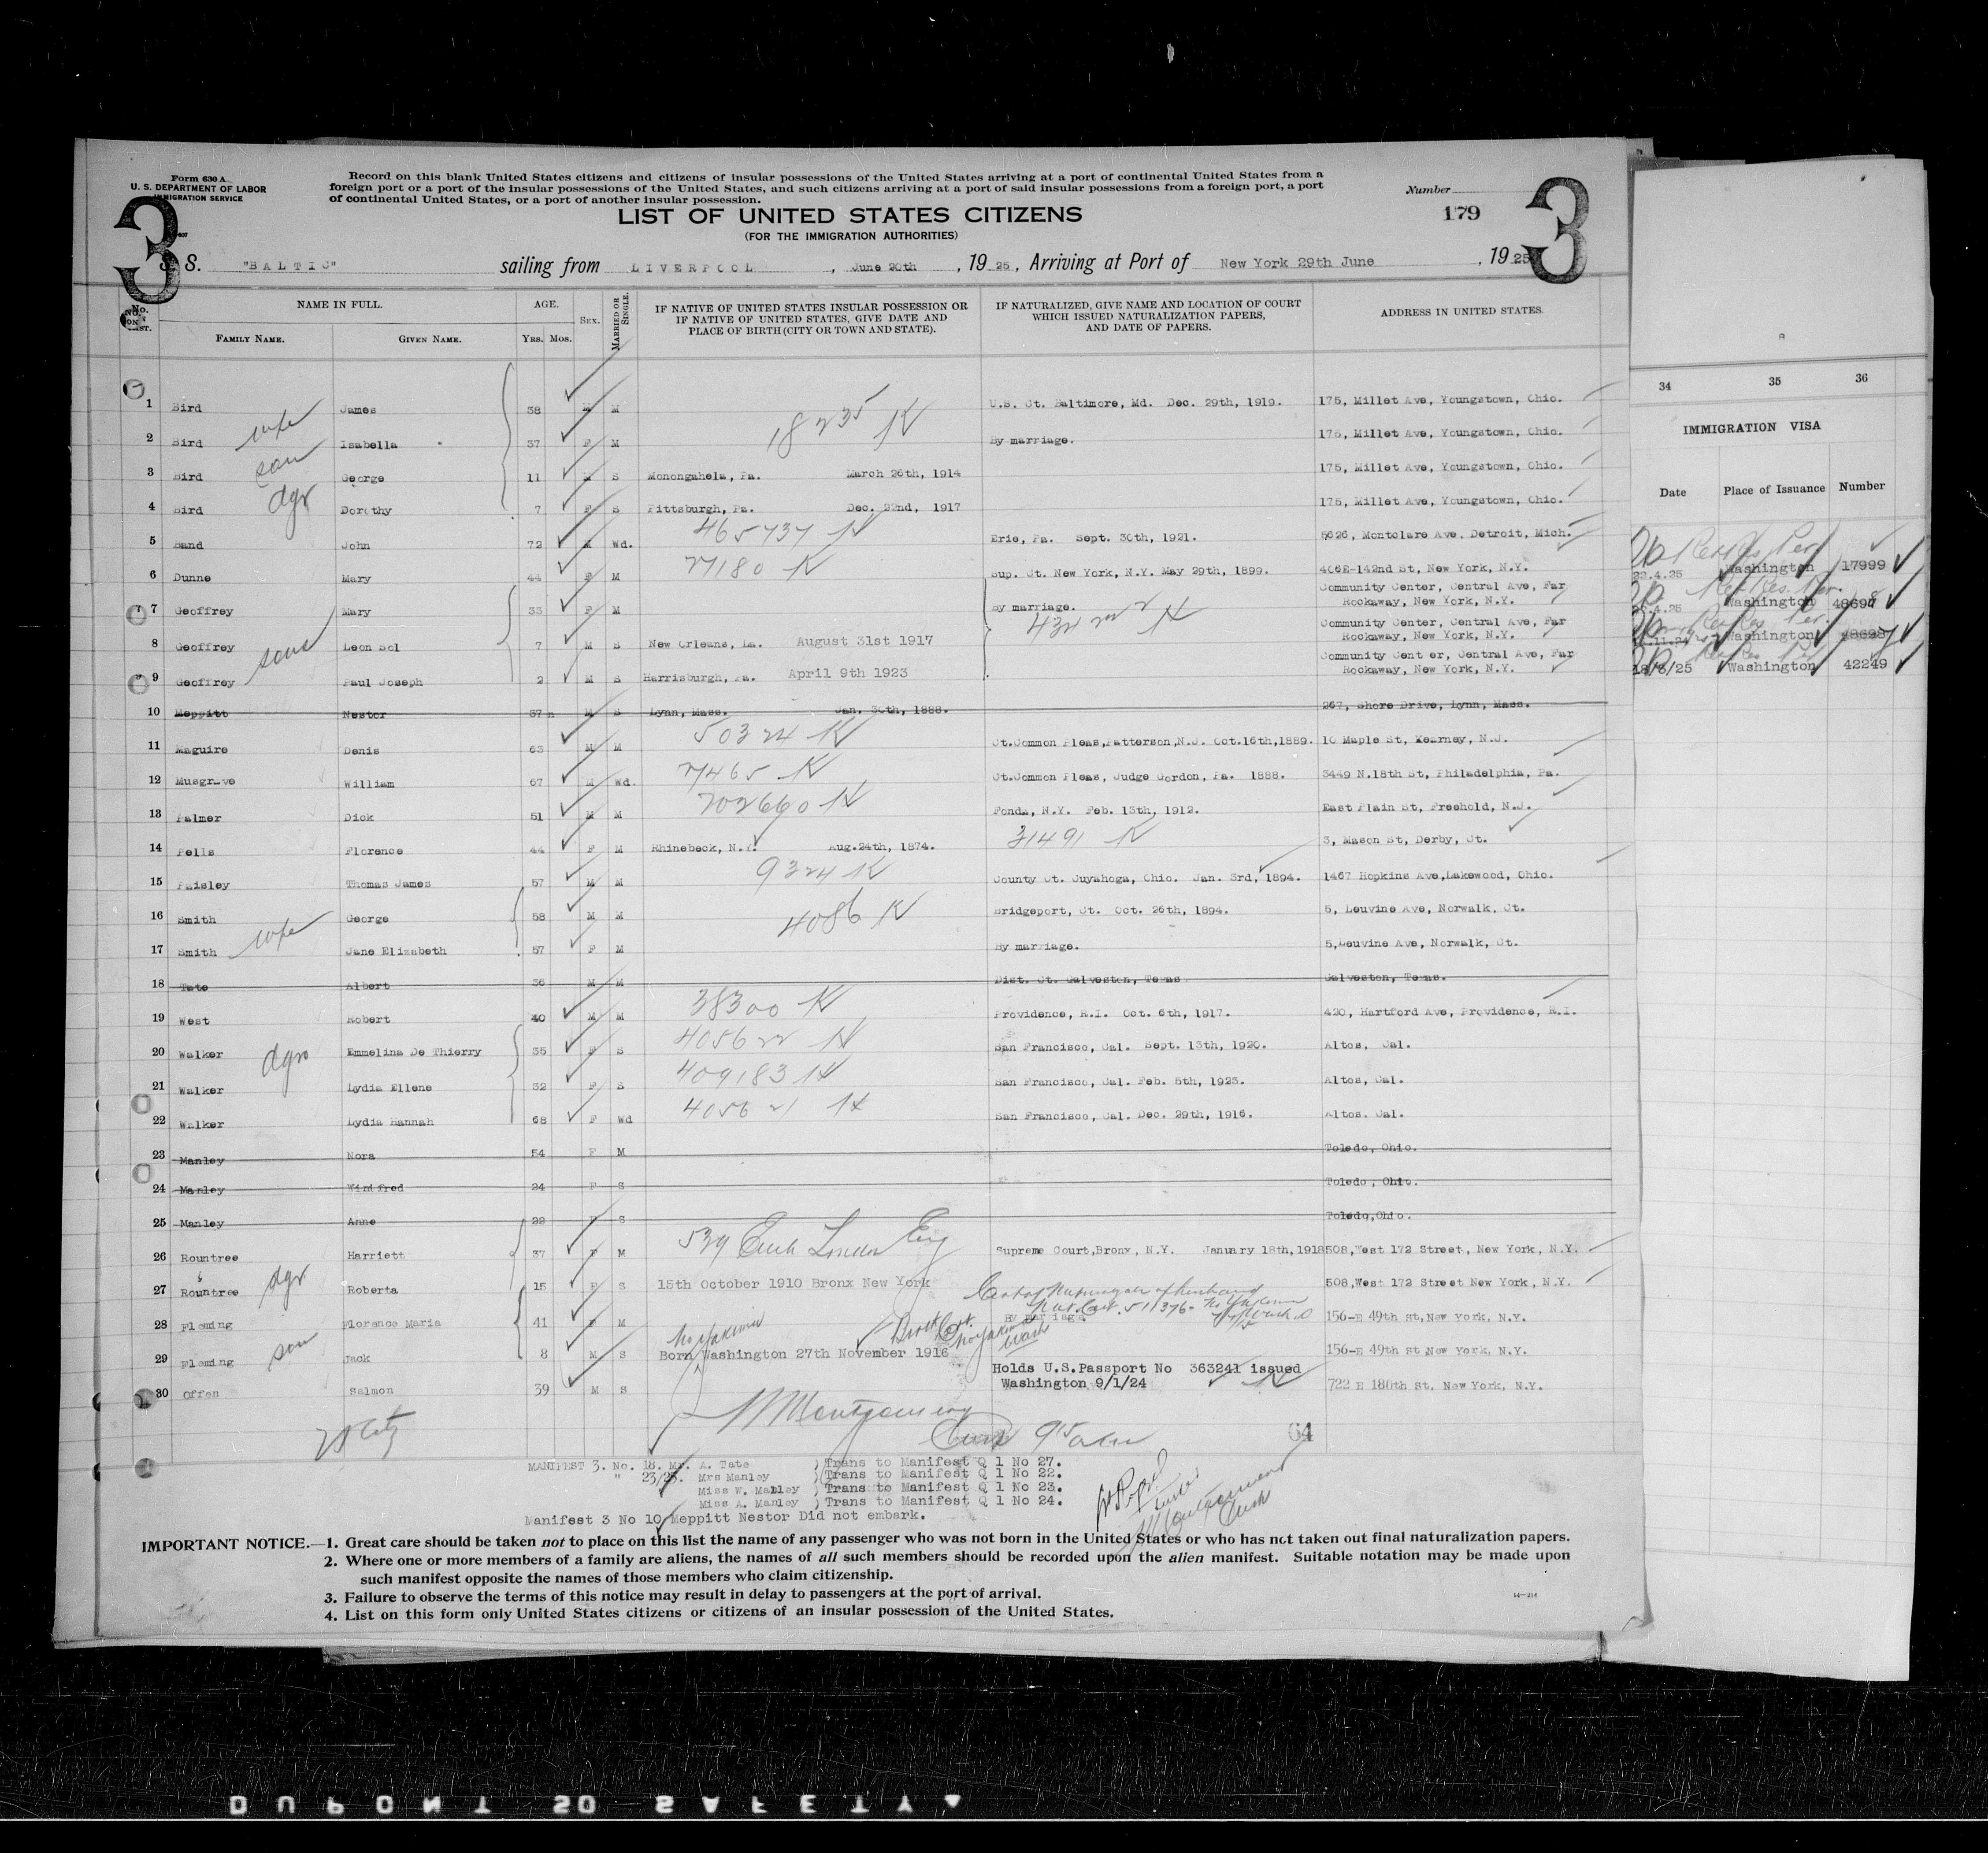 Form 630 A
U. S. DEPARTMENT OF LABOR
IMMIGRATION SERVICE
Record on this blank United States citizens and citizens of insular possessions of the United States arriving at a port of continental United States from a
foreign port or a port of the insular possessions of the United States, and such citizens arriving at a port of said insular possessions from a foreign port, a port
of continental United States, or a port of another insular possession.
Number
179
3
3
LIST OF UNITED STATES CITIZENS
(FOR THE IMMIGRATION AUTHORITIES)
S. S. "BALTIC" sailing from LIVERPOOL, June 20th, 1925, Arriving at Port of New York 29th June, 1925
No. ON LIST.
NAME IN FULL.
FAMILY NAME. GIVEN NAME.
AGE.
YRS. MOS.
SEX.
MARRIED OR SINGLE.
IF NATIVE OF UNITED STATES INSULAR POSSESSION OR
IF NATIVE OF UNITED STATES, GIVE DATE AND
PLACE OF BIRTH (CITY OR TOWN AND STATE).
IF NATURALIZED, GIVE NAME AND LOCATION OF COURT
WHICH ISSUED NATURALIZATION PAPERS,
AND DATE OF PAPERS.
ADDRESS IN UNITED STATES.
1 Bird James 38 M M 18235 K U.S. Ct. Baltimore, Md. Dec. 29th, 1919. 175, Millet Ave, Youngstown, Ohio.
2 Bird wife Isabella 37 F M By marriage. 175, Millet Ave, Youngstown, Ohio.
3 Bird son George 11 M S Monongahela, Pa. March 26th, 1914 175, Millet Ave, Youngstown, Ohio.
4 Bird dgr Dorothy 7 F S Pittsburgh, Pa. Dec. 22nd, 1917 175, Millet Ave, Youngstown, Ohio.
5 Band John 72 M Wd. 465737 K Erie, Pa. Sept. 30th, 1921. 5626, Montclare Ave, Detroit, Mich.
6 Dunne Mary 44 F M 27180 K Sup. Ct. New York, N.Y. May 29th, 1899. 406E-142nd St, New York, N.Y.
7 Geoffrey Mary 33 F M By marriage. Community Center, Central Ave, Far
Rockaway, New York, N.Y.
8 Geoffrey sons Leon Sol 7 M S New Orleans, La. August 31st 1917 Community Center, Central Ave, Far
Rockaway, New York, N.Y.
9 Geoffrey Paul Joseph 2 M S Harrisburgh, Pa. April 9th 1923 Community Cent er, Central Ave, Far
Rockaway, New York, N.Y.
10 Meppitt Nestor 37 M S Lynn, Mass. Jan. 30th, 1888. 267, Shore Drive, Lynn, Mass.
11 Maguire Denis 63 M M 50324 K Ct.Common Pleas,Patterson,N.J. Oct.16th,1889. 10 Maple St, Kearney, N.J.
12 Musgrave William 67 M Wd. 27465 K Ct.Common Pleas, Judge Gordon, Pa. 1888. 3449 N.18th St, Philadelphia, Pa.
13 Palmer Dick 51 M M 202660 K Fonda, N.Y. Feb. 13th, 1912. East Plain St, Freehold, N.J.
14 Pells Florence 44 F M Rhinebeck, N.Y. Aug.24th, 1874. 31491 K 3, Mason St, Derby, Ct.
15 Paisley Thomas James 57 M M 9324 K County Ct. Cuyahoga, Ohio. Jan. 3rd, 1894. 1467 Hopkins Ave,Lakewood, Ohio.
16 Smith George 58 M M 4086 K Bridgeport, Ct. Oct. 26th, 1894. 5, Leuvine Ave, Norwalk, Ct.
17 Smith wife Jane Elizabeth 57 F M By marriage. 5,Leuvine Ave, Norwalk, Ct.
18 Tate Albert 36 M M Dist. Ct. Galveston, Texas Galveston, Texas.
19 West Robert 40 M M 38300 K Providence, R.I. Oct. 6th, 1917. 420, Hartford Ave, Providence, R.I.
20 Walker dgrs Emmelina De Thierry 35 F S 405622 K San Francisco, Cal. Sept. 13th, 1920. Altos, Cal.
21 Walker Lydia Ellene 32 F S 409183 K San Francisco, Cal. Feb. 5th, 1923. Altos, Cal.
22 Walker Lydia Hannah 68 F Wd 405621 K San Francisco, Cal. Dec. 29th, 1916. Altos. Cal.
23 Manley Nora 54 F M Toledo, Ohio.
24 Manley Winifred 24 F S Toledo, Ohio.
25 Manley Anne 22 F S Toledo,Ohio.
26 Rountree Harriett 37 F M London Eng Supreme Court,Bronx, N.Y. January 18th,1918 508,West 172 Street, New York, N.Y.
27 Rountree dgr Roberta 15 F S 15th October 1910 Bronx New York 508,West 172 Street New York, N.Y.
28 Fleming Florence Maria 41 F M By marriage. 156-E 49th St,New York, N.Y.
29 Fleming son Jack 8 M S Born Washington 27th November 1916 156-E 49th St New York, N.Y.
30 Offen Salmon 39 M S Holds U.S.Passport No 363241 issued
Washington 9/1/24 722 E 180th St, New York, N.Y.
Montgomery
64
MANIFEST 3. No. 18. Mr. A. Tate ) Trans to Manifest Q 1 No 27.
" 23/25. Mrs Manley ) Trans to Manifest Q 1 No 22.
Miss W. Manley ) Trans to Manifest Q 1 No 23.
Miss A. Manley ) Trans to Manifest Q 1 No 24.
Manifest 3 No 10 Meppitt Nestor Did not embark.
IMPORTANT NOTICE.—1. Great care should be taken not to place on this list the name of any passenger who was not born in the United States or who has not taken out final naturalization papers.
2. Where one or more members of a family are aliens, the names of all such members should be recorded upon the alien manifest. Suitable notation may be made upon
such manifest opposite the names of those members who claim citizenship.
3. Failure to observe the terms of this notice may result in delay to passengers at the port of arrival.
4. List on this form only United States citizens or citizens of an insular possession of the United States.
34 35 36
IMMIGRATION VISA
Date Place of Issuance Number
22.4.25 Washington 17999
Washington 48697
Washington 48698
18/6/25 Washington 42249
DUPONT SAFETY